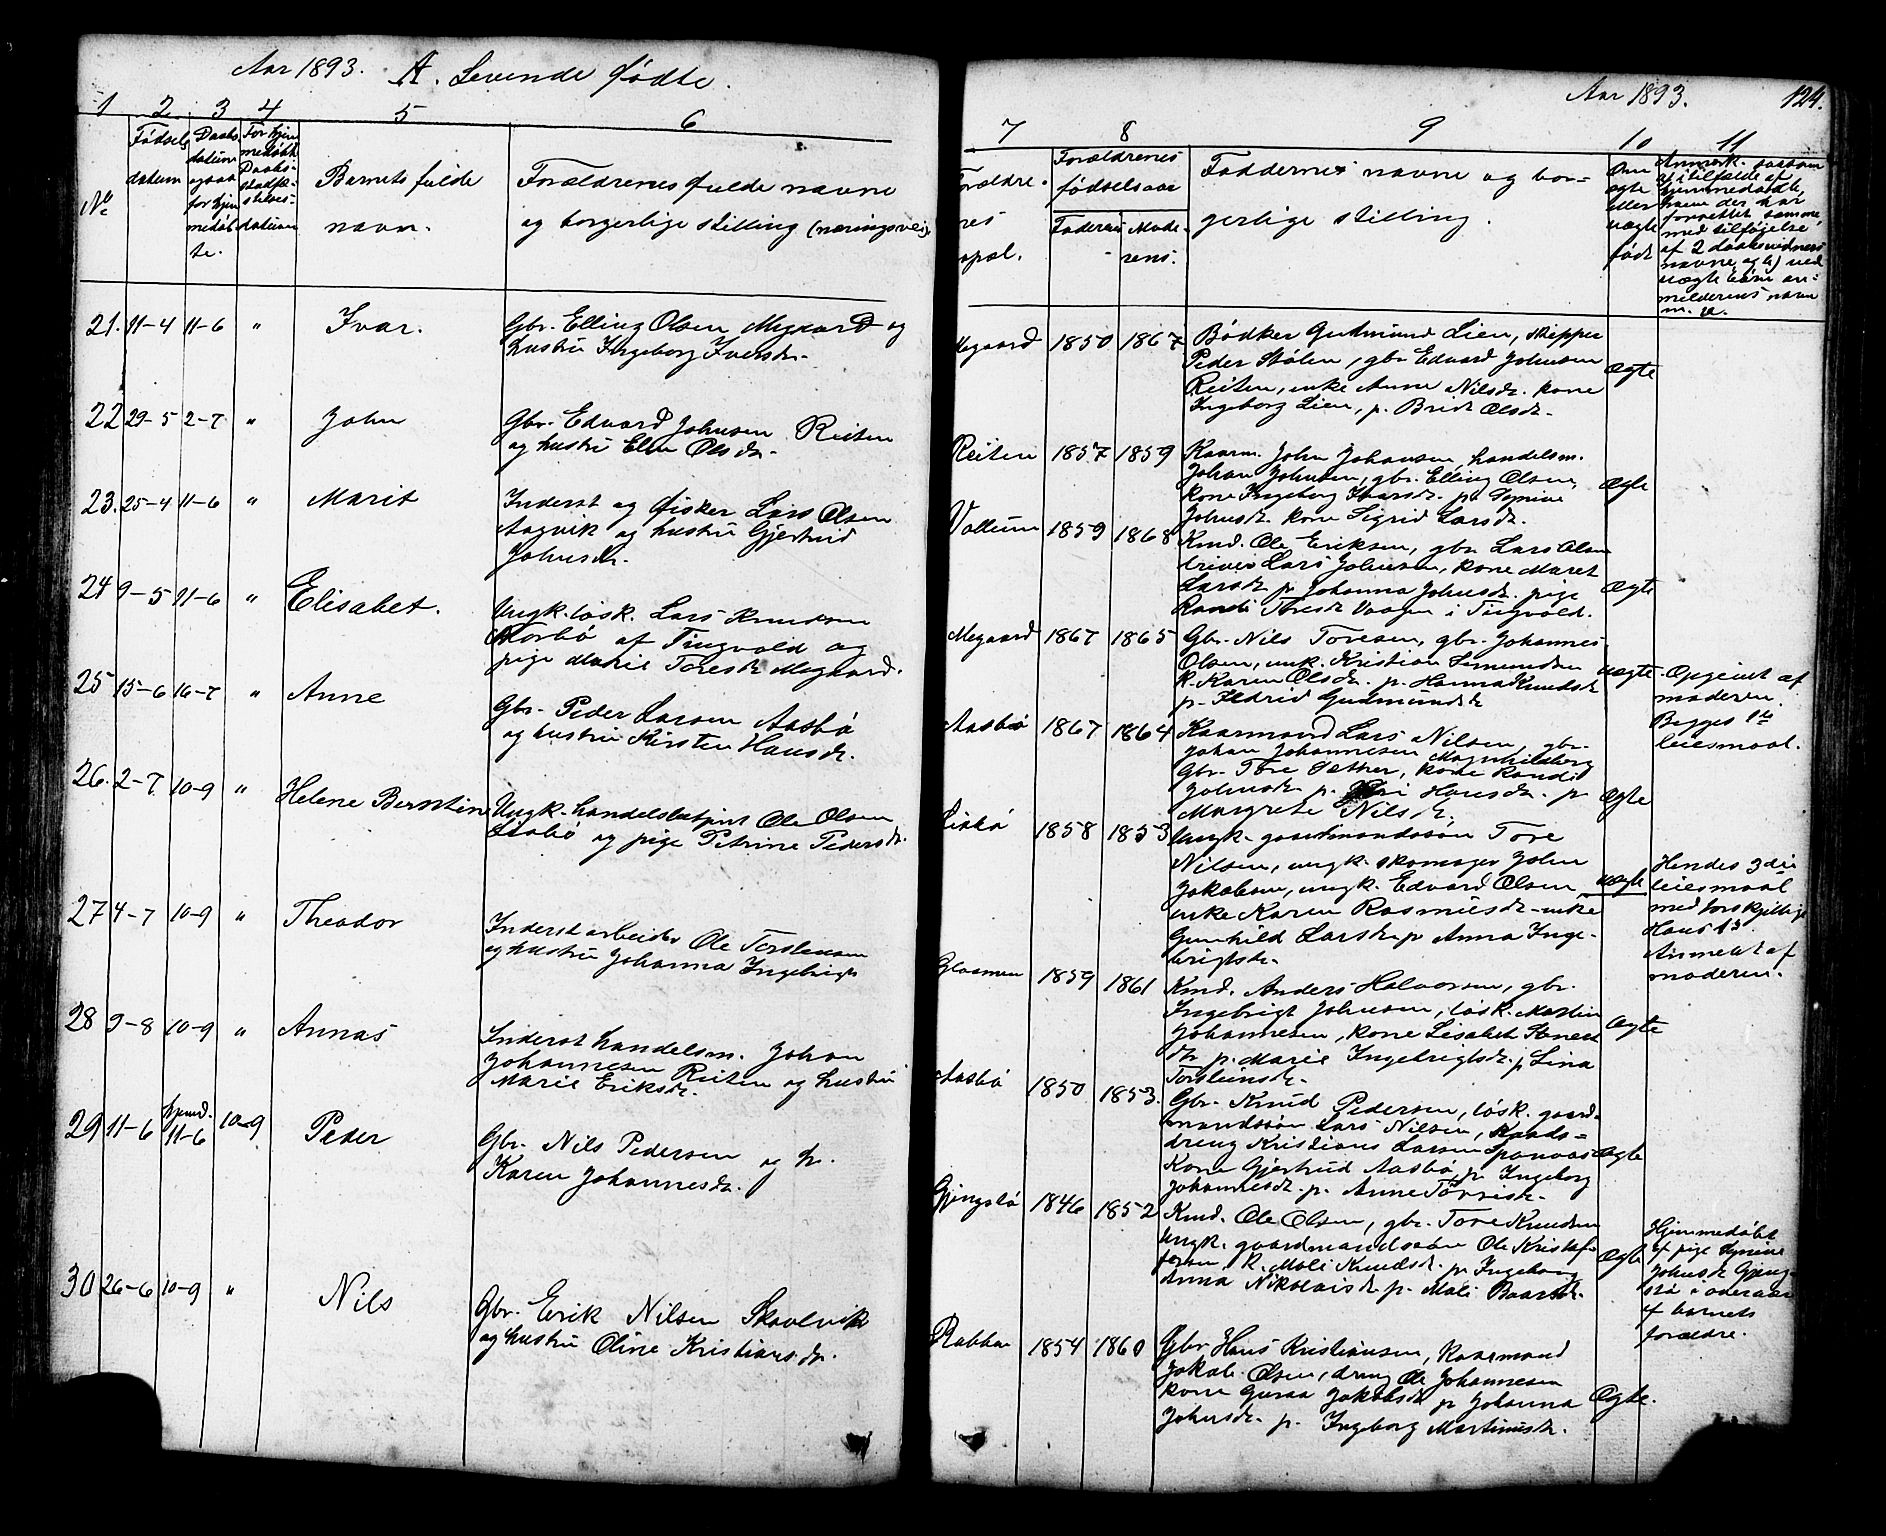 Aar 1893. A. Levende fødte.
1 2 3 4 5 6
No
Fødsels
datum
Daabs
datum
ogsaa
for hjem
medøb
te.
For hjem
medøbt
Daabs
stadfæ-
stelses-
datum
Barnets fulde
navn.
Forældrenes fulde navne
og borgerlige stilling (næringsvei)
21. 11-4 11-6 " Ivar.
Gbr. Elling Olsen Megaard og
hustru Ingeborg Iversdr.
22 29-5 2-7 " John
Gbr. Edvard Johnsen Reiten
og hustru Elen Olsdr.
23. 25-4 11-6 " Marit
Inderst og fisker Lars Olsen
Aagvik og hustru Gjertrud
Johnsdr.
24 9-5 11-6 " Elisabet.
Ungk. løsk. Lars Knudsen
Torbø af Tingvold og
pige Marit Toresdr Megaard.
25 15-6 16-7 " Anne
Gbr. Peder Larsen Aasbø
og hustru Kirsten Hansdr.
26. 2-7 10-9 " Helene Berntine
Ungk. handelsbetjent Ole Olsen
Lesbø og pige Petrine Pedersdr.
27 4-7 10-9 " Theodor
Inderst arbeider Ole Torsteinsen
og hustru Johanna Ingebrigts
28 9-8 10-9 " Annas
Inderst handelsm. Johan
Johannesen Reiten og hustru
Marie Eriksdr.
29 11-6 hjemd. 11-6 10-9 Peder
Gbr. Nils Pedersen og h.
Karen Johannesdr.
30 26-6 10-9 " Nils
Gbr. Erik Nilsen Skolvik
og hustru Oline Kristiansdr.
Aar 1893. 124.
7 8 9 10 11
Forældre-
nes
bopæl.
Forældrenes
fødselsaar
Faderens
Mode-
rens.
Faddernes navne og bor-
gerlige stilling.
Om
ægte
eller
uægte
født
Anmærk. saasom
a) i tilfælde af
hjemmedaab,
hvem der har
forrettet samme,
med tilføjelse
af 2 daabsvidners
navne, og b) ved
uægte børn an-
melderens navn
m. v.
Megaard 1850 1867
Bødker Gudmund Lien, skipper
Peder Stølen, gbr Edvard Johnsen
Reiten, enke Anne Nilsdr. kone
Ingeborg Lien, p. Brit Olsdr.
ægte
Reiten 1857 1859
Kaarm. John Johansen, handelsm.
Johan Johnsen, gbr. Elling Olsen,
kone Ingeborg Ivarsdr. p. Synnøve
Johnsdr. kone Sigrid Larsdr.
Ægte
Vollum 1859 1868
Kmd. Ole Eriksen, gbr Lars Olsen
Lars Johnsen, kone Maret
Larsdr p Johanna Johnsdr. pige
Randi Toresdr Vaagen i Tingvold.
Ægte
Megaard 1867 1865
Gbr. Nils Toresen, gbr. Johannes
Olsen, unk. Kristian Simundsen
k. Karen Olsdr. p. Hanna Knudsdr
p. Ildrid Gudmundsdr
uægte
Opgivet af
moderen.
Begges 1ste
leiesmaal.
Aasbø 1867 1864
Kaarmand Lars Nilsen, gbr.
Johan Johannesen Magnhildberg
Gbr. Tore Sæther, kone Randi
Johnsdr p. Hansdr. p
Margrete Nilsdr.
Ægte
Lesbø 1858 1853
Ungk. gaardmandssøn Tore
Nilsen, ungk. skomager John
Jakobsen, ungk. Edvard Olsen,
enke Karen Rasmusdr. enke
Gunhild Larsdr p Anna Inge-
brigtsdr.
uægte
Hendes 3die
leiesmaal
med forskjellige
Hans 1ste
Anmeldt af
moderen.
Glaamen 1859 1861
Kmd. Anders Halvorsen, gbr.
Ingebrigt Johnsen, løsk. Martin
Johannesen, kone Lisabet
dr p. Marie Ingebrigtsdr. p Lina
Torsteinsdr.
Ægte
Aasbø 1850 1853.
Gbr. Knud Pedersen, løsk. gaard-
mandssøn Lars Nilsen,
dreng Kristians Larsen
Kone Gjertrud Aasbø p. Ingeborg
Johannesdr. p. Anne
Ægte
Gjengstø 1846 1852
Kmd. Ole Olsen, gbr. Tore Knudsen
Ungk. gaardmandssøn Ole Kristof-
fersen, k. Mali Knudsdr. p. Ingeborg
Anna Nikolaisdr p. Mali Baardsdr.
Ægte
Hjemmedøbt
af pige Synnøve
Johnsdr Gjeng-
stø i overvær
af barnets
forældre.
Rabben 1854 1860
Gbr Hans Kristiansen, kaarmand
Jakob Olsen, dreng Ole Johannesen
kone Guraa Jakobsdr p Johanna
Johnsdr. p. Ingeborg Martinusdr.
Ægte.